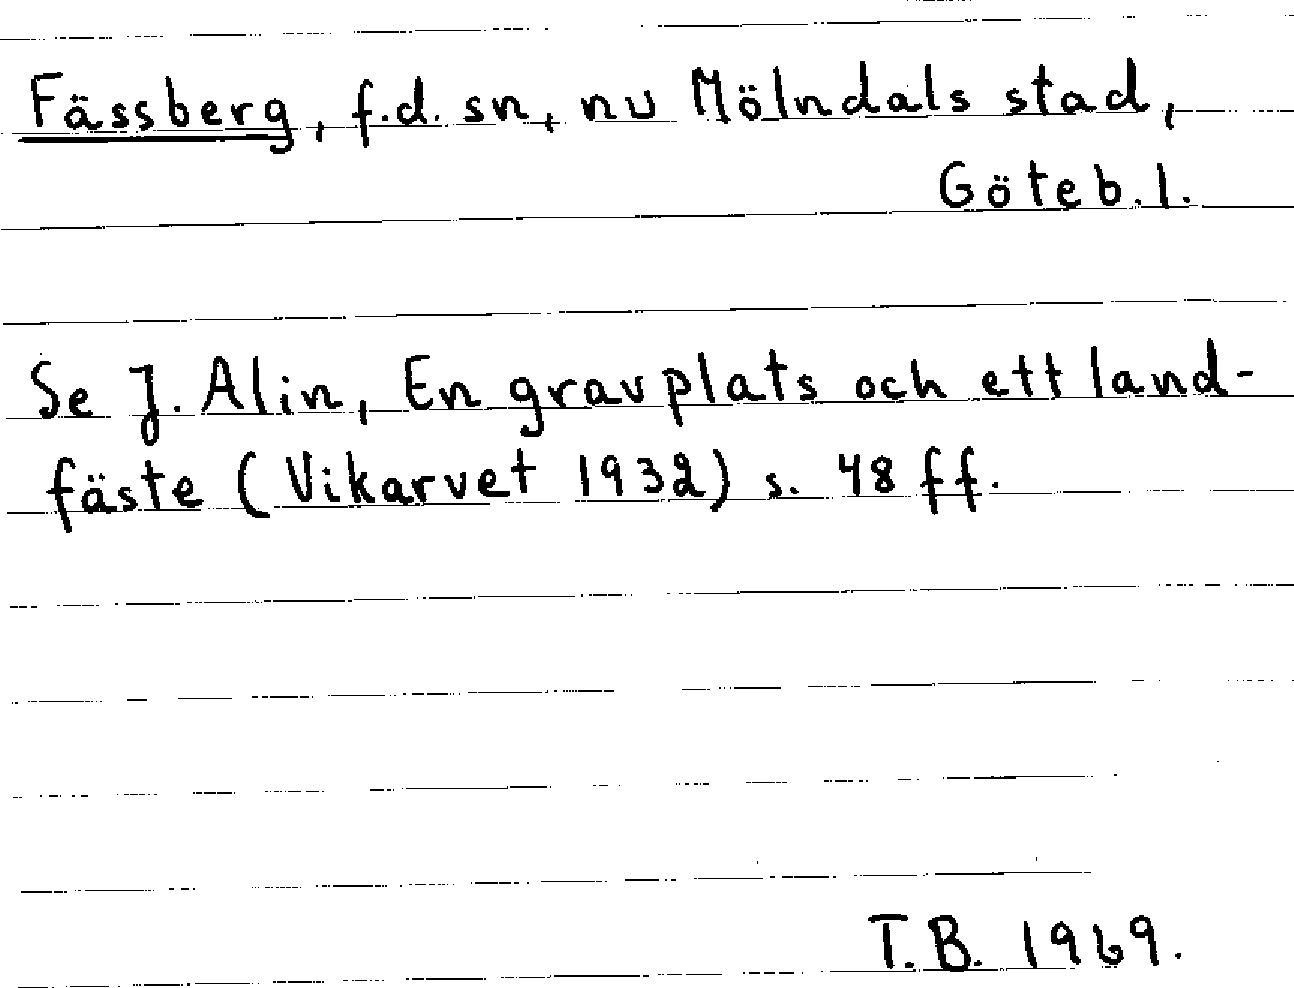 Fässberg, f.d. sn, nu Mölndals stad,
Göteb. l.
Se J. Alin, En gravplats och ett land-
fäste (Vikarvet 1932) s. 48 ff.
T.B. 1969.